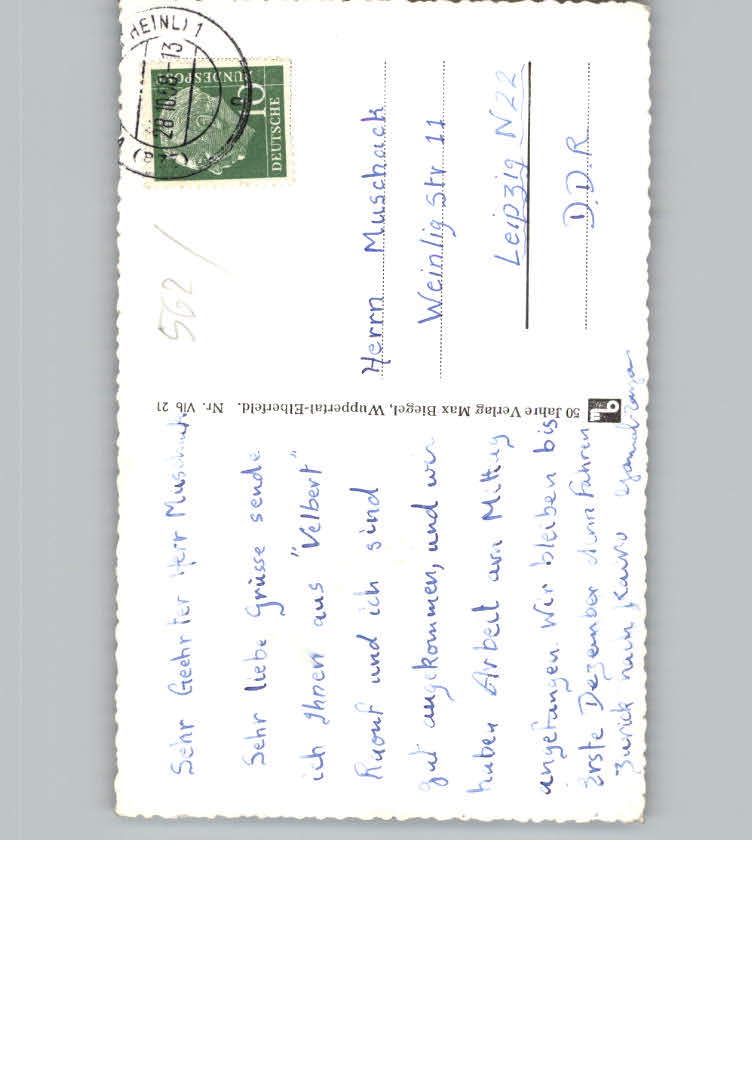 Sehr Geehrter Herr Muschack
Sehr liebe Grüsse sende
ich Ihnen aus "Velbert"
Raouf und ich sind
gut angekommen, und wir
haben Arbeit am Mittag
angefangen. Wir bleiben bis
Erste Dezember dann Fahren
Zurick nach Kairo
50 Jahre Verlag Max Biegel, Wuppertal-Elberfeld. Nr. Vlb 21
HEINL) 1
28.10.
-13
DEUTSCHE
BUNDESPOST
10
562/
Herrn Muschack
Weinlig Str 11
Leipzig N22
D.D.R